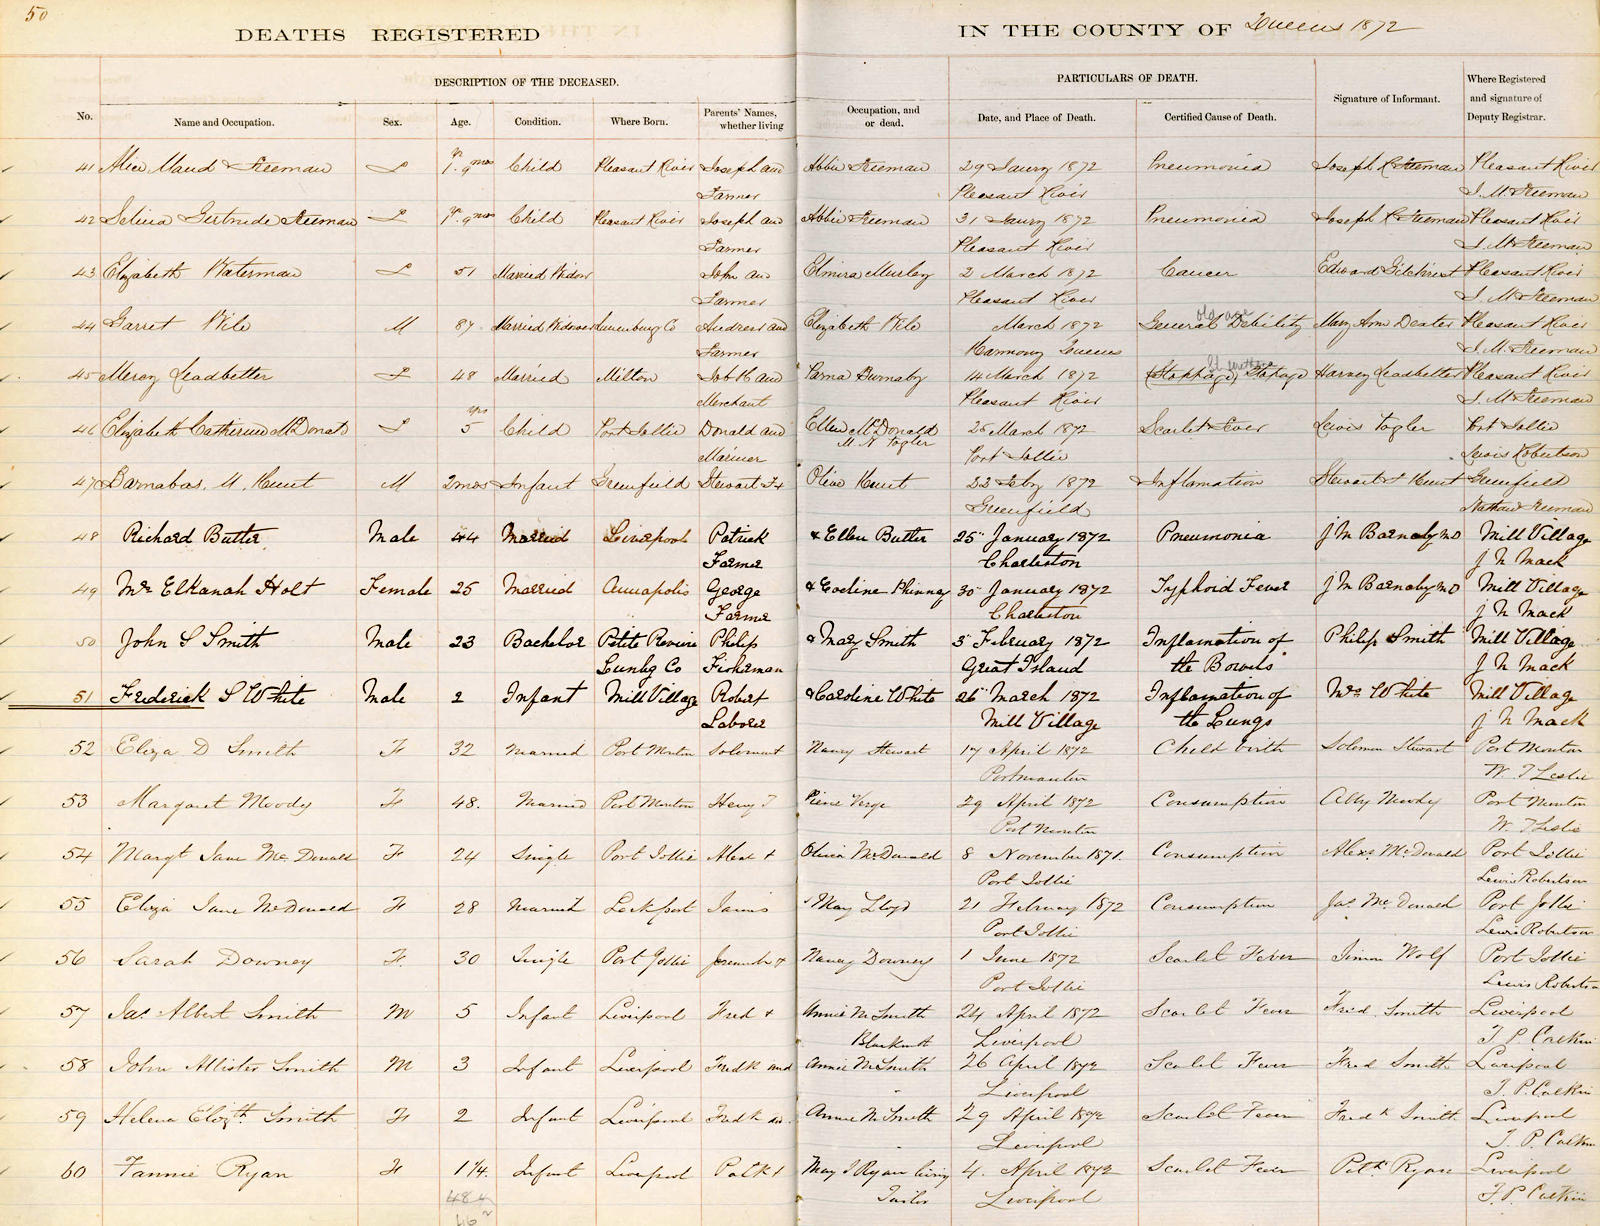 50
DEATHS REGISTERED IN THE COUNTY OF Queens 1872
DESCRIPTION OF THE DECEASED. PARTICULARS OF DEATH.
No. Name and Occupation. Sex. Age. Condition. Where Born. Parents' Names, whether living Occupation, and or dead. Date, and Place of Death. Certified Cause of Death. Signature of Informant. Where Registered and signature of Deputy Registrar.
41 Alice Maud Freeman F 9 mos Child Pleasant River Joseph and Abbie Freeman 29 Jany 1872 Pneumonia Joseph C Freeman Pleasant River
Farmer Pleasant River J. M. Freeman
42 Selina Gertrude Freeman F 9 mos Child Pleasant River Joseph and Abbie Freeman 31 Jany 1872 Pneumonia Joseph C Freeman Pleasant River
Farmer Pleasant River J. M. Freeman
43 Elizabeth Waterman F 51 Married Widow John an Elmira 2 March 1872 Cancer Edward Gilchrist Pleasant River
Farmer Pleasant River J. M. Freeman
old age
44 Garret Wile M 87 Married Widower Lunenburg Co Andrew and Elizabeth Wile March 1872 General Debility Mary Ann Dexter Pleasant River
Farmer Harmony Queens J. M. Freeman
45 Leadbetter F 48 Married Milton Job H and 14 March 1872 (Stoppage) Harvey Leadbetter Pleasant River
Merchant Pleasant River J. M. Freeman
yrs
46 Elizabeth Catherine McDonald F 5 Child Port Jollie Donald and Ellen McDonald 25 March 1872 Scarlet Fever Lewis Togler Port Jollie
Mariner M. N. Togler Port Jollie Lewis Robertson
47 Barnabas M. Hunt M 2 mos Infant Greenfield Stewart Olive Hunt 22 Feby 1872 Inflamation Stewart F Hunt Greenfield
Greenfield Nathan Freeman
48 Richard Butler Male 44 Married Liverpool Patrick & Ellen Butler 25" January 1872 Pneumonia J M Barnaby MD Mill Village
Farmer Charleston J N Mack
49 Mrs Elkanah Holt Female 25 Married Annapolis George & Eveline Phinney 30" January 1872 Typhoid Fever J M Barnaby MD Mill Village
Farmer Charleston J N Mack
50 John S Smith Male 23 Bachelor Petite Reviere Philip & Mary Smith 3" February 1872 Inflamation of Philip Smith Mill Village
Lunbg Co Fisherman Great Island the Bowels J N Mack
51 Frederick S White Male 2 Infant Mill Village Robert & Caroline White 26" March 1872 Inflamation of Mrs White Mill Village
Laborer Mill Village the Lungs J N Mack
52 Eliza D Smith F 32 Married Port Mouton Solomon Nancy Stewart 17 April 1872 Child birth Solomon Stewart Port Mouton
Portmouton W. T Leslie
53 Margaret Moody F 48. Married Port Mouton Henry T 29 April 1872 Consumption Moody Port Mouton
Port Mouton W. T Leslie
54 Margt Jane McDonald F 24 Single Port Jollie Alex & Olivia McDonald 8 November 1871. Consumption Alexr McDonald Port Jollie
Port Jollie Lewis Robertson
55 Eliza Jane McDonald F 28 Married Lockport James Mary Lloyd 21 February 1872 Consumption Jas McDonald Port Jollie
Port Jollie Lewis Robertson
56 Sarah Downey F. 30 Single Port Jollie Jeremiah & Nancy Downey 1 June 1872 Scarlet Fever Simon Wolf Port Jollie
Port Jollie Lewis Robertson
57 Jas Albert Smith M 5 Infant Liverpool Fred & Annie M Smith 24 April 1872 Scarlet Fever Fred. Smith Liverpool
Blacksmith Liverpool T. P. Calkin
58 John Allister Smith M 3 Infant Liverpool Fredk and Annie M Smith 26 April 1872 Scarlet Fever Fred Smith Liverpool
Liverpool T. P. Calkin
59 Helena Elizth Smith F 2 Infant Liverpool Fredk an. Annie M Smith 29 April 1872 Scarlet Fever Fredk Smith Liverpool
Liverpool T. P. Calkin
60 Fannie Ryan F 1 1/4. Infant Liverpool Patk & May J Ryan living 4. April 1872 Scarlet Fever Patk Ryan Liverpool
Tailor Liverpool T. P. Calkin